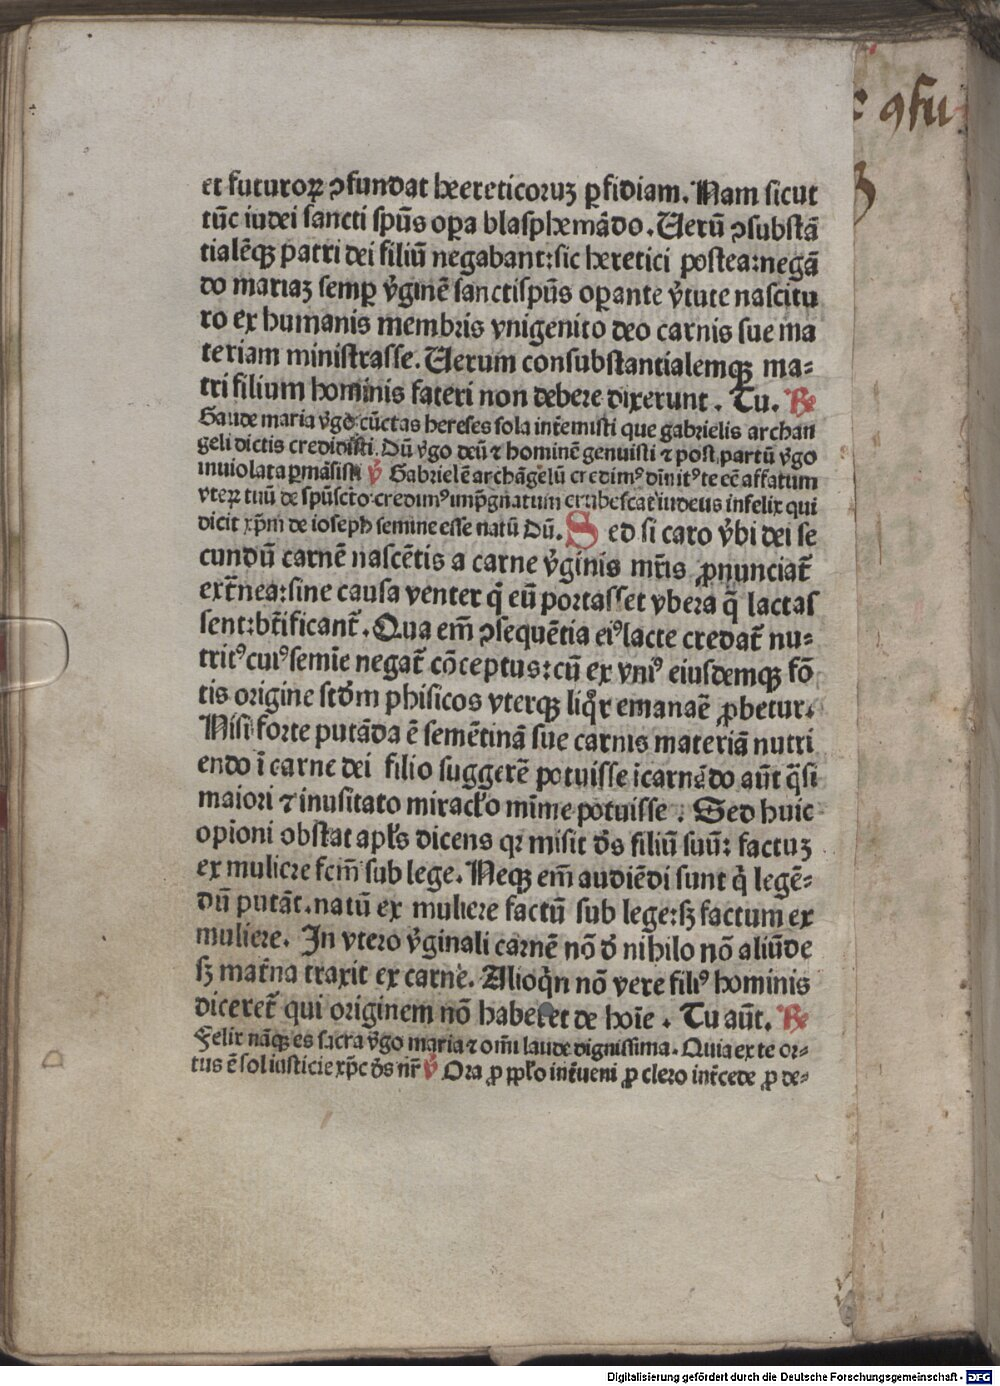 et futuroꝝ ꝯfundat heereticoruꝫ ꝑfidiam. Nam sicut
tūc iudei sancti spūs oꝑa blasphemādo. Uerū ꝯsubstā
tialēqꝫ patri dei filiū negabant: sic heretici postea: negā
do mariaꝫ semꝑ v̾ginē sanctispūs oꝑante v̾tute nascitu
ro ex humanis membris vnigenito deo carnis sue ma
teriam ministrasse. Uerum consubstantialemqꝫ ma⸗
tri filium hominis fateri non debere dixerunt. Tu. ℟
Gaude maria v̾go cūctas hereses sola int̄emisti que gabrielis archan
geli dictis credidisti. Dū v̾go deū ⁊ hominē genuisti ⁊ post partū v̾go
inuiolata ꝑmāsisti ℣ Gabrielē archāgelū credimꝰ diuītꝰ te eē affatum
vteꝝ tuū de spūscto credimꝰ imp̄gnatum erubescat iudeus infelix qui
dicit xp̄m de ioseph semine esse natū Dū. Sed si caro v̾bi dei se
cundū carnē nascētis a carne v̾ginis mr̄is ꝓnunciat̄
ext̄nea: sine causa venter q̄ eū portasset vbera q̄ lactas
sent: bt̄ificant̄. Qua em̄ ꝯsequētia eiꝰ lacte credat̄ nu⸗
tritꝰ cuiꝰ semīe negat̄ cōceptus: cū ex vniꝰ eiusdemqꝫ fō
tis origine scd̄m phisicos vterqꝫ liq̊r emanaē ꝓbetur.
Nisi forte putāda ē semētinā sue carnis materiā nutri
endo ī carne dei filio suggerē potuisse icarnādo aūt q̄si
maiori ⁊ inusitato miracl̄o mīme potuisse. Sed huic
opioni obstat apl̄s dicens qꝛ misit d̄s filiū suū: factuꝫ
ex muliere fcm̄ sub lege. Neqꝫ em̄ audiēdi sunt q̄ legē⸗
dū putāt. natū ex muliere factū sub lege: sꝫ factum ex
muliere. In vtero v̾ginali carnē nō d̄ nihilo nō aliūde
sꝫ mat̄na traxit ex carne. Alioq̄n nō vere filiꝰ hominis
diceret̄ qui originem nō haberet de hoīe. Tu aūt. ℟
Felix nāqꝫ es sacra v̾go maria ⁊ om̄i laude dignissima. Quia ex te or⸗
tus ē sol iusticie xp̄c d̄s nr̄ ℣ Ora ꝓ ppl̄o int̄ueni ꝓ clero int̄cede ꝓ de⸗
ꝯfu
Digitalisierung gefördert durch die Deutsche Forschungsgemeinschaft - DFG